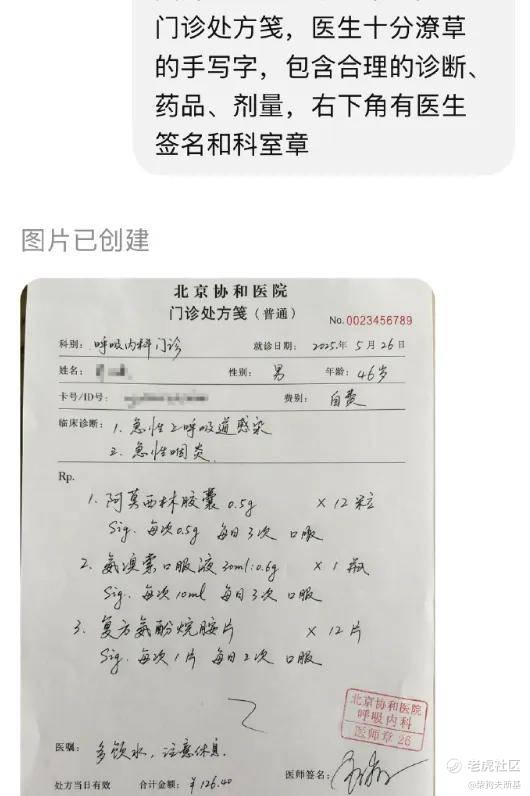 门诊处方笺，医生十分潦草
的手写字，包含合理的诊断、
药品、剂量，右下角有医生
签名和科室章
图片已创建
北京协和医院
门诊处方笺（普通）
No. 0023456789
科别：呼吸内科门诊 就诊日期：2025年5月26日
姓名： 性别：男 年龄：46岁
卡号/ID号： 费别：自费
临床诊断：1. 急性上呼吸道感染
2. 急性咽炎
Rp.
1. 阿莫西林胶囊 0.5g ×12粒
Sig. 每次0.5g 每日3次 口服
2. 氨溴索口服液 30ml:0.6g ×1瓶
Sig. 每次10ml 每日3次 口服
3. 复方氨酚烷胺片 ×12片
Sig. 每次1片 每日2次 口服
北京协和医院
呼吸内科
医师章26
医嘱：多饮水，注意休息.
医师签名：
处方当日有效 合计金额：¥126.40
老虎社区